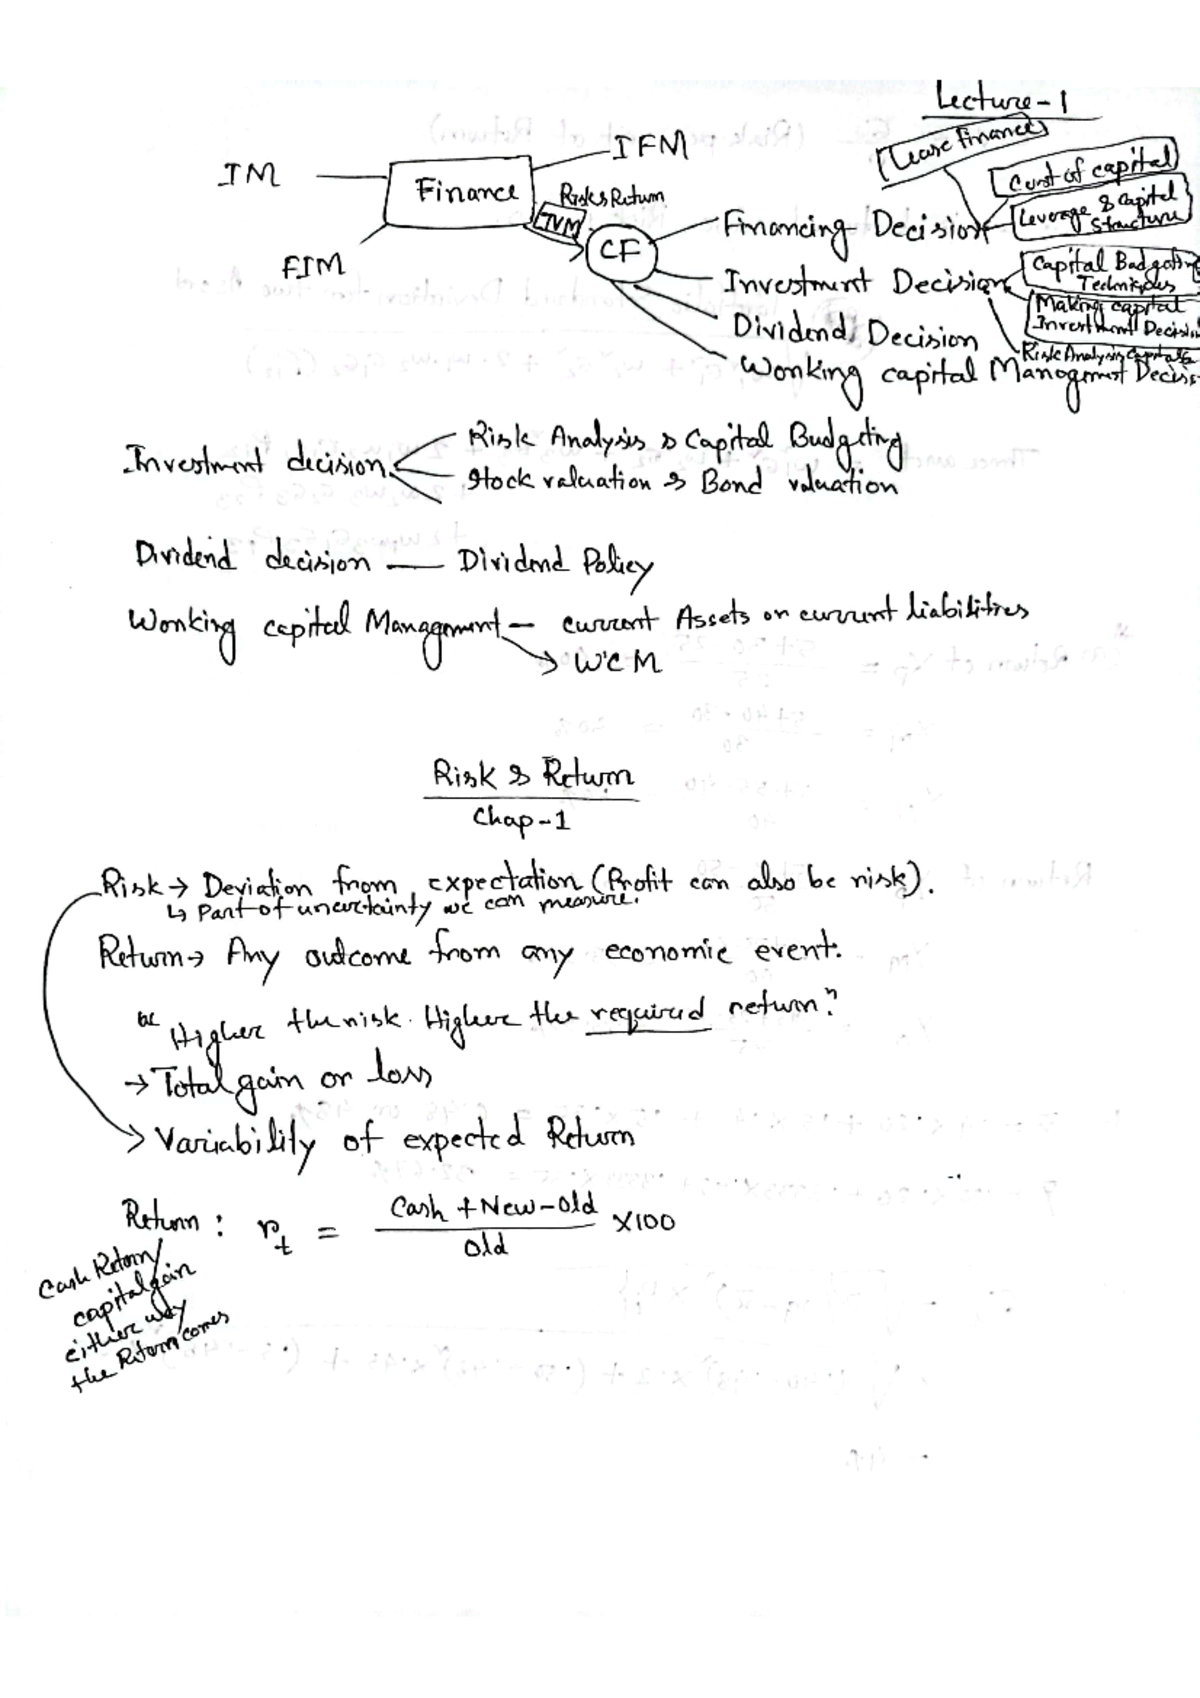 Lecture-1
Lease finance
IM
Finance
IFM
FIM
Risk & Return
TVM
CF
Financing Decision
Cost of capital
Leverage & Capital Structure
Investment Decision
Capital Budgeting
Techniques
Making capital
Investment Decision
Risk Analysis
Dividend Decision
Working capital Managment Decis
Investment decision
Risk Analysis & Capital Budgeting
Stock valuation & Bond valuation
Dividend decision — Dividend Policy
Working capital Management — current Assets or current liabilities
→ WCM
Risk & Return
Chap-1
Risk → Deviation from expectation (Profit can also be risk).
↳ Part of uncertainty we can measure.
Return → Any outcome from any economic event.
"Higher the risk. Higher the required return"
→ Total gain or loss
→ Variability of expected Return
Return: r_t = (Cash + New - Old) / Old × 100
Cash Return/
capital gain
either way
the Return comes